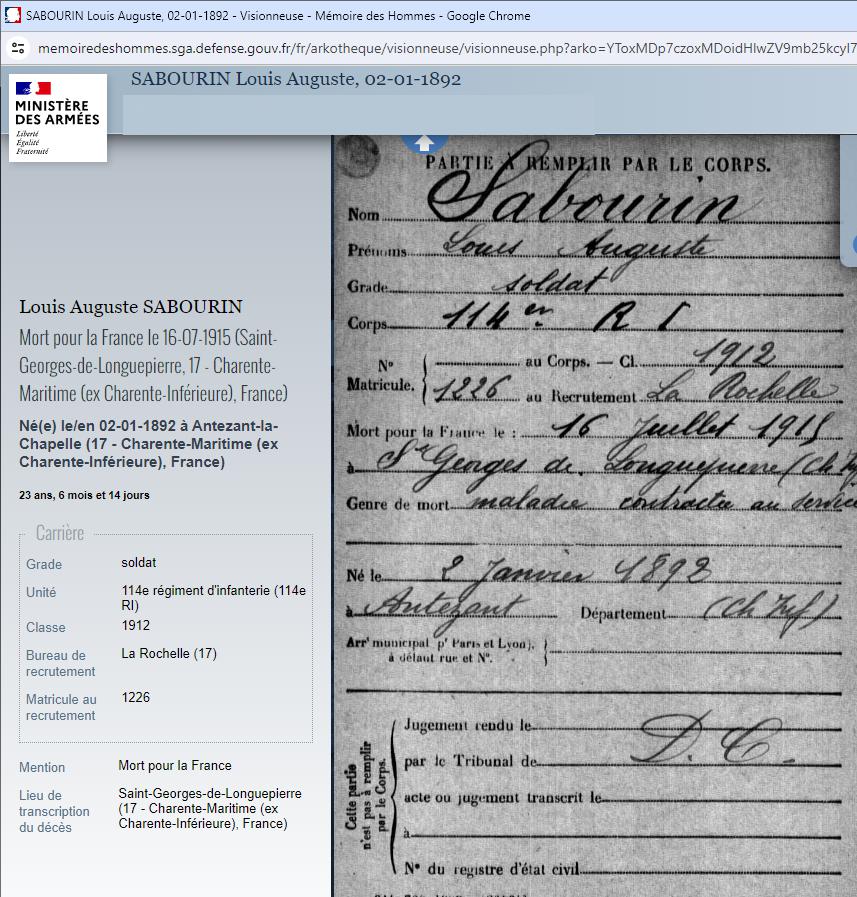 SABOURIN Louis Auguste, 02-01-1892 - Visionneuse - Mémoire des Hommes - Google Chrome
memoiredeshommes.sga.defense.gouv.fr/fr/arkotheque/visionneuse/visionneuse.php?arko=YToxMDp7czoxMDoidHlwZV9mb25kcyI7
SABOURIN Louis Auguste, 02-01-1892
MINISTÈRE
DES ARMÉES
Liberté
Égalité
Fraternité
Louis Auguste SABOURIN
Mort pour la France le 16-07-1915 (Saint-
Georges-de-Longuepierre, 17 - Charente-
Maritime (ex Charente-Inférieure), France)
Né(e) le/en 02-01-1892 à Antezant-la-
Chapelle (17 - Charente-Maritime (ex
Charente-Inférieure), France)
23 ans, 6 mois et 14 jours
Carrière
Grade soldat
Unité 114e régiment d'infanterie (114e
RI)
Classe 1912
Bureau de La Rochelle (17)
recrutement
Matricule au 1226
recrutement
Mention Mort pour la France
Lieu de Saint-Georges-de-Longuepierre
transcription (17 - Charente-Maritime (ex
du décès Charente-Inférieure), France)
PARTIE À REMPLIR PAR LE CORPS.
Nom Sabourin
Prénoms Louis Auguste
Grade soldat
Corps 114 er R I
N° au Corps. — Cl. 1912
Matricule. 1226 au Recrutement La Rochelle
Mort pour la France le : 16 Juillet 1915
à St Georges de Longuepierre (Ch Inf
Genre de mort maladie contractée au service
Né le 2 Janvier 1892
à Antezant Département (Ch Inf)
Arrt municipal pr Paris et Lyon),
à défaut rue et N°.
Cette partie
n'est pas à remplir
par le Corps.
Jugement rendu le
par le Tribunal de D. C.
acte ou jugement transcrit le
à
N° du registre d'état civil